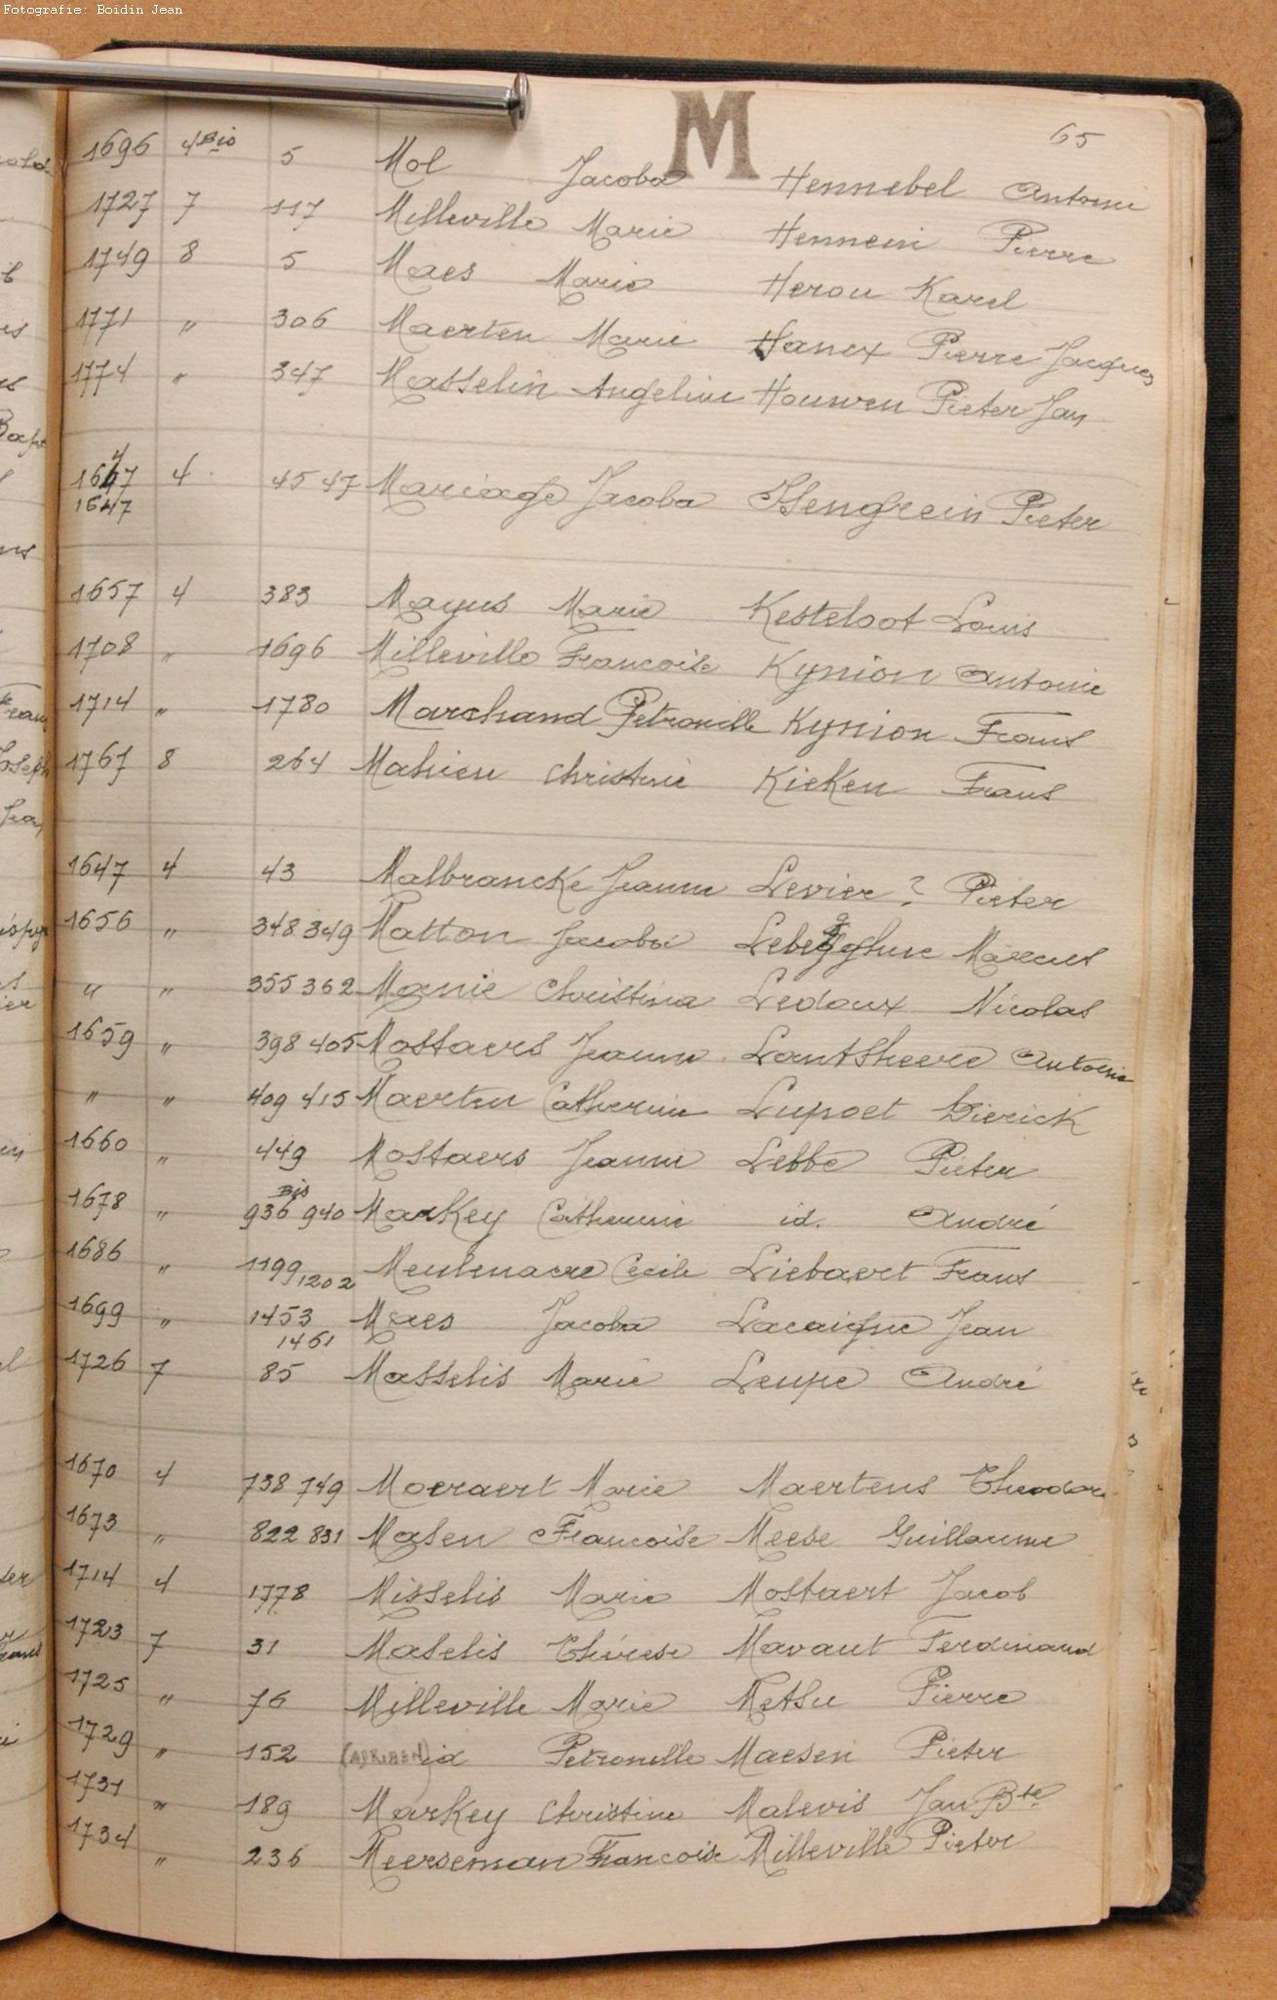 Fotografie: Boidin Jean
M
65
1696 4Bis 5 Mol Jacoba Hennebel Antoine
1727 7 117 Milleville Marie Hennein Pierre
1749 8 5 Maes Marie Herou Karel
1771 " 306 Maerten Marie Hancx Pierre Jacques
1774 " 347 Masselin Angeline Houwen Pieter Jan
1647 4 45 47 Mariage Jacoba Isengrein Pieter
1647
1657 4 383 Mayus Marie Kesteloot Louis
1708 " 1696 Milleville Francoise Kynion Antoine
1714 " 1780 Marchand Petronille Kynion Frans
1767 8 264 Mahieu Christine Kieken Frans
1647 4 43 Malbrancke Jeanne Levier ? Pieter
1656 " 348 349 Matton Jacoba Marcus
" " 355 362 Manie Christina Ledoux Nicolas
1659 " 398 405 Mostaers Jeanne Lantsheere Antoine
" " 409 415 Maerten Catherine Lupoet Dierick
1660 " 449 Mostaers Jeanne Lebbe Pieter
1678 " 936 Bis 940 Markey Catherine id. André
1686 " 1199 1202 Meulenaere Cecile Liebaert Frans
1699 " 1453 Maes Jacoba Lacaigne Jean
1461
1726 7 85 Masselis Marie Leupe André
1670 4 738 749 Moeraert Marie Maertens Theodore
1673 " 822 831 Masen Francoise Meese Guillaume
1714 4 1778 Misselis Marie Mostaert Jacob
1723 7 31 Maselis Thérese Mavaut Ferdinand
1725 " 76 Milleville Marie Metsu Pierre
1729 " 152 id Petronille Maesen Pieter
1731 " 189 Markey Christine Malevis Jan Bte
1734 " 236 Meerseman Francoise Milleville Pieter